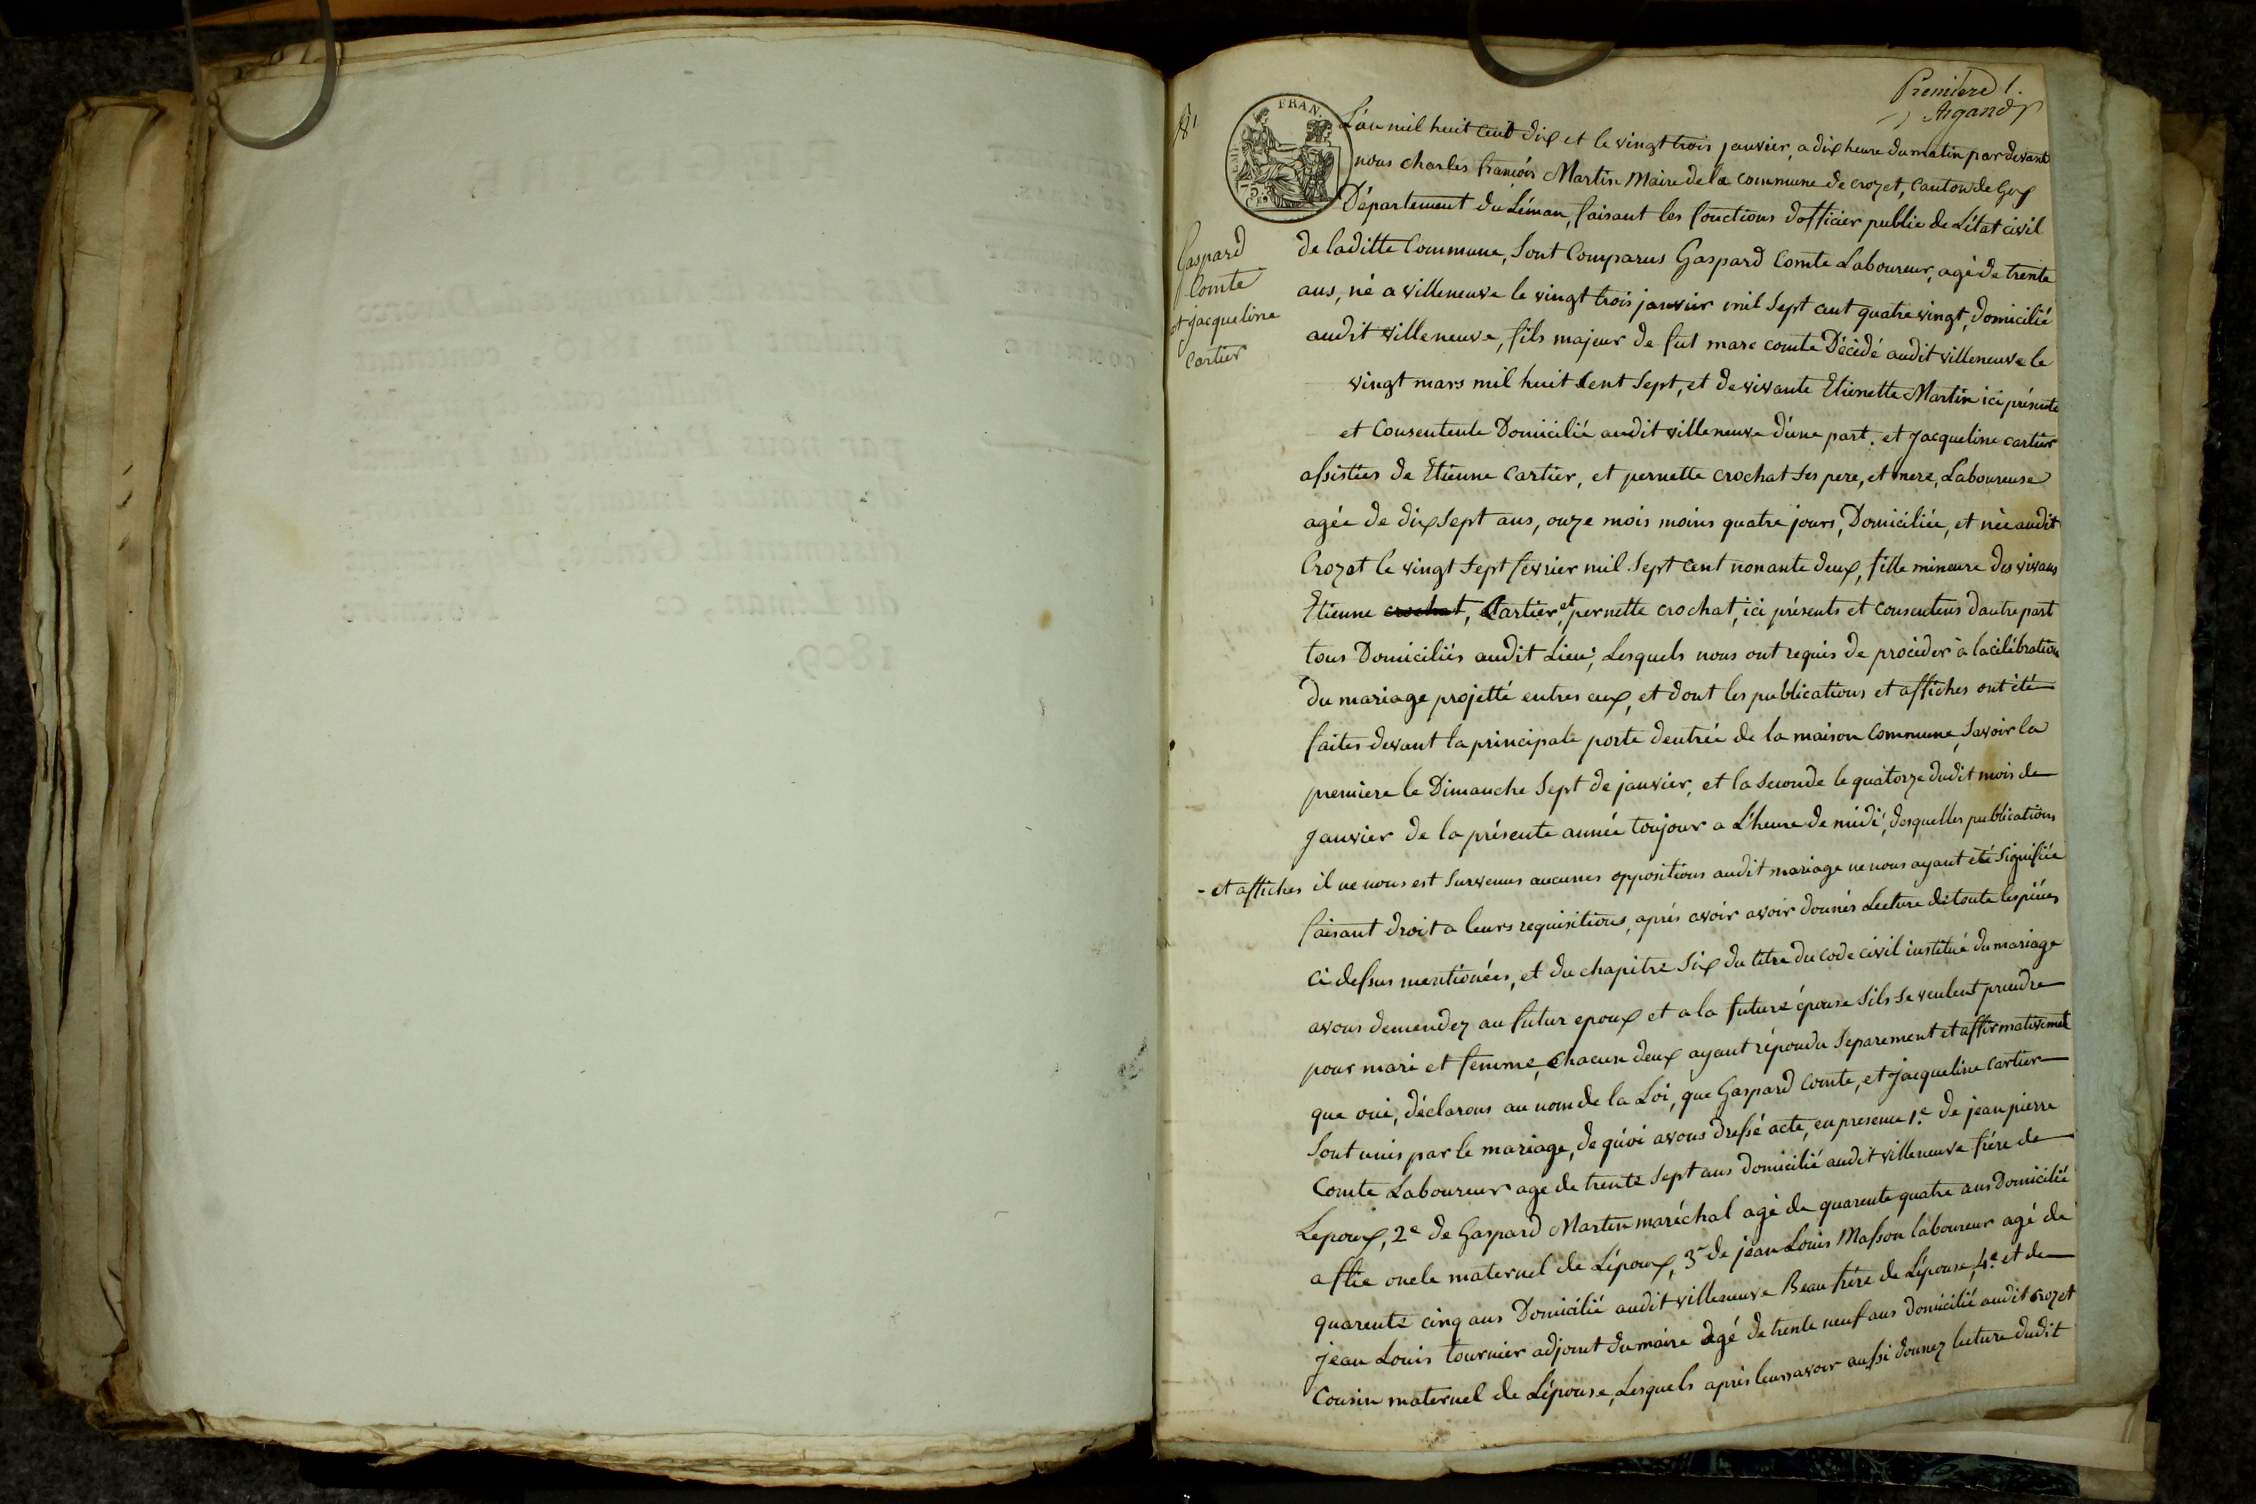 Premiere 1.
Argand
FRAN.
75
L'an mil huit cent dix et le vingt trois janvier, a dix heure du matin par devant
nous charles francois Martin Maire de la commune de crozet, Canton de Gex
Département du Léman, faisant les fonctions dofficier public de L'état civil
Gaspard
Comte
et jacqueline
Cartier
de laditte Commune, Sont Comparus Gaspard Comte Laboureur, agé de trente
ans, né a villeneuve le vingt trois janvier mil Sept cent quatre vingt, domicilié
audit villeneuve, fils majeur de fut marc comte Décédé audit villeneuve le
vingt mars mil huit Cent Sept, et de vivante Etienette Martin ici présente
et Consentente Domicilié audit villeneuve d'une part. et Jacqueline cartier
assistées de Etienne Cartier, et pernette crochat ses pere, et mere, Laboureuse
agée de dix Sept ans, onze mois moins quatre jours, Domiciliée, et née audit
Crozet le vingt Sept février mil Sept Cent nonante deux, fille mineure des vivans
Etienne crochat, Cartier, et pernette crochat, ici présents et consentens dautre part
tous Domiciliés audit Lieu; Lesquels nous ont requis de procéder à la célébration
du mariage projetté entres eux, et dont les publications et affiches ont été
faites devant la principale porte dentrée de la maison Commune, Savoir la
premiere le Dimanche Sept de janvier, et la Seconde le quatorze dudit mois de
Janvier de la présente année toujour a L'heure de midi, desquelles publications
- et affiches il ne nous est Survenus aucunes oppositions audit mariage ne nous ayant été Signifiée
faisant droit a leurs requisitions, aprés avoir avoir donnés Lecture de toute les piéces
ci dessus mentionées, et du chapitre Six du titre du code civil institué du mariage
avons demendez au futur epoux et a la future épouse Sils Se veulent prendre
pour mari et femme, Chacun deux ayant répondu Separement et affirmativement
que oui, déclarons au nom de la Loi, que Gaspard Comte, et Jacqueline Cartier
Sont unis par le mariage, de quoi avons dressé acte, en presence 1.e de jean pierre
Comte Laboureur age de trente Sept ans domicilié audit villeneuve frére de
Lepoux, 2e de Gaspard Martin maréchal agé de quarente quatre ans Domicilié
a flie oncle maternel de L'époux, 3e de jean Louis Masson laboureur agé de
quarente cinq ans Domicilié audit villeneuve Beau frére de L'épouse, 4.e et de
Jean Louis tournier adjoint du maire agé de trente neuf ans domicilié audit crozet
Cousin maternel de L'épouse, Lesquels aprés leurs avoir aussi donnez lecture dudit